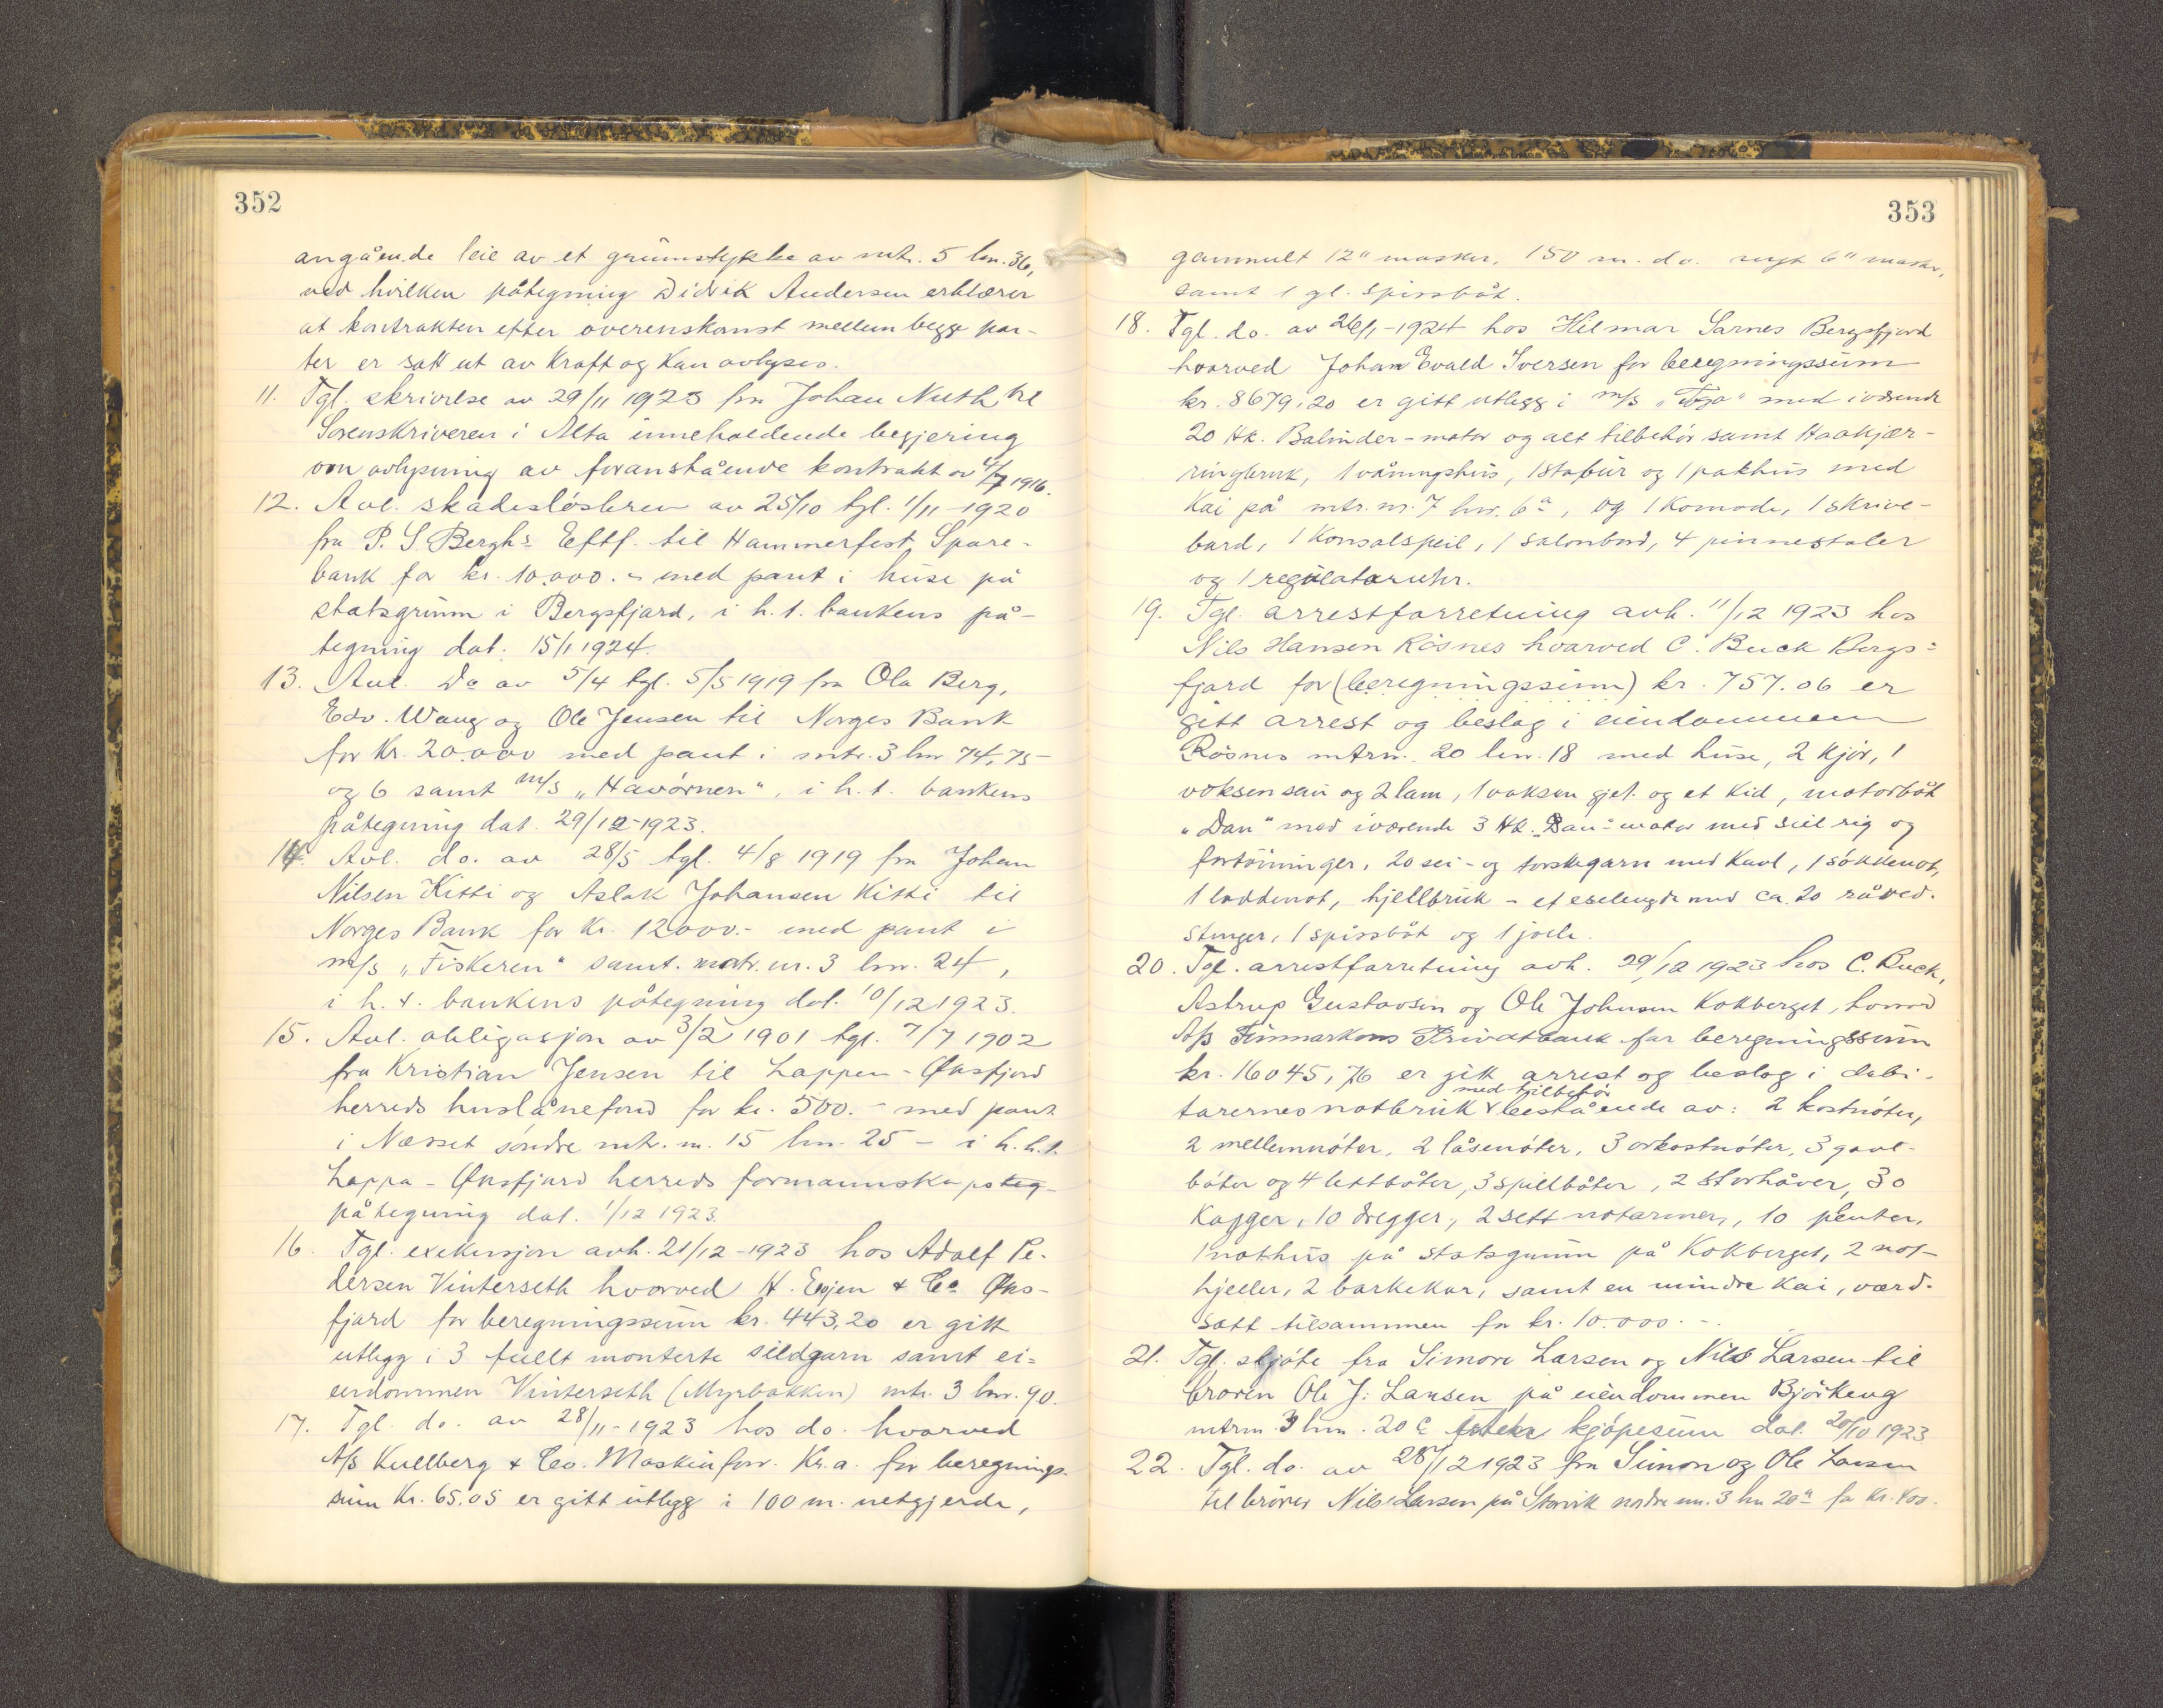 352
angående leie av et grunnstykke av mtr. 5 lnr. 36,
ved hvilken påtegning Didrik Andersen erklærer
at kontrakten efter overenskomst mellem begge par-
ter er satt ut av kraft og kan avlyses.
11. Tgl. skrivelse av 29/11 1923 fra Johan Nuth til
Sorenskriveren i Alta inneholdende begjering
om avlysning av foranstående kontrakt av 4/7 1916.
12. Avl. skadesløsbrev av 25/10 tgl. 1/11 1920
fra P. S. Berghs Eftf. til Hammerfest Spare-
bank for kr. 10.000.- med pant i huse på
statsgrunn i Bergsfjord, i h. t. bankens på-
tegning dat. 15/1 1924.
13. Avl. Do av 5/4 tgl. 5/5 1919 fra Ola Berg,
Edv. Wang og Ole Jensen til Norges Bank
for kr. 20.000 med pant i mtr. 3 lnr 74, 75
og 6 samt m/s "Havørnen", i h. t. bankens
påtegning dat. 29/12-1923.
14. Avl. do. av 28/5 tgl. 4/8 1919 fra Johan
Nilsen Kitti og Aslak Johansen Kitti til
Norges Bank for kr. 12000.- med pant i
m/s "Fiskeren" samt. matr. nr. 3 lnr. 24,
i h. t. bankens påtegning dat. 10/12 1923.
15. Avl. obligasjon av 3/2 1901 tgl. 7/7 1902
fra Kristian Jensen til Loppen-Øksfjord
herreds huslånefond for kr. 500.- med pant
i Næsset søndre mtr. nr. 15 lnr. 25 - i h. h. t.
Loppa-Øksfjord herreds formannskapsteg-
påtegning dat. 1/12 1923.
16. Tgl. exekusjon avh. 21/12-1923 hos Adolf Pe-
dersen Vinterseth hvorved H. Esjen & Co Øks-
fjord for beregningssum kr. 443,20 er gitt
utlegg i 3 fullt monterte sildgarn samt ei-
endommen Vinterseth (Myrbakken) mtr. 3 lnr. 90.
17. Tgl. do. av 28/11-1923 hos do. hvorved
A/s Kullberg & Co. Maskinforr. Kr.a. for beregnings-
sum kr. 65.05 er gitt utlegg i 100 m. notgjerde,
353
gammelt 12" masker, 150 m. do. nyt 6" masker,
samt 1 gl. spissbåt.
18. Tgl. do. av 26/1-1924 hos Hilmar Sarnes Bergsfjord
hvorved Johan Evald Iversen for beregningssum
kr. 8679,20 er gitt utlegg i m/s "Toja" med ivær­ende
20 Hk. Bolinder-motor og alt tilbehör samt Haakjær-
ringbruk, 1 våningshus, 1 stabur og 1 pakhus med
kai på mtr. nr. 7 lnr. 6a, og 1 Komode, 1 skrive-
bord, 1 Konsolspeil, 1 salonbord, 4 pinnestoler
og 1 regulatoruhr.
19. Tgl. arrestforretning avh. 11/12 1923 hos
Nils Hansen Rösnes hvorved C. Buck Bergs-
fjord for (beregningssum) kr. 757.06 er
gitt arrest og beslag i eiendommen
Rösnes mtrn. 20 lnr. 18 med huse, 2 kjör, 1
voksen sau og 2 lam, 1 voksen gjet og et kid, motorbåt
"Dan" med iværende 3 Hk. Dan-motor med seil rig og
fortöininger, 20 sei- og torskegarn med kavl, 1 sökkenot,
1 loddenot, hjellbruk - et eselengde med ca. 20 råved-
stenger, 1 spissbåt og 1 jolle.
20. Tgl. arrestforretning avh. 29/12 1923 hos C. Buck,
Astrup Gustavsen og Ole Johnsen Kokberget, hvorved
A/s Finnmarkens Privatbank for beregningssum
kr. 16045,76 er gitt arrest og beslag i debi-
med tilbehör
torernes notbruk bestående av: 2 kostnöter,
2 mellemnöter, 2 låsenöter, 3 orkastnöter, 3 gavl-
båter og 4 lettbåter, 3 spillbåter, 2 storhåver, 30
Kagger, 10 dregger, 2 sett notarmer, 10 plenter,
1 nothus på statsgrunn på Kokberget, 2 not-
hjeller, 2 barkekar, samt en mindre kai, værd-
satt tilsammen for kr. 10.000.-.
21. Tgl. skjöte fra Simon Larsen og Nils Larsen til
broren Ole J. Larsen på eiendommen Björkeng
mtrnr. 3 lnr. 20 c kjöpesum dat. 20/10 1923
22. Tgl. do. av 28/12 1923 fra Simon og Ole Larsen
til brorer Nils Larsen på Storvik nordre nr. 3 lnr 20a for kr. 400.